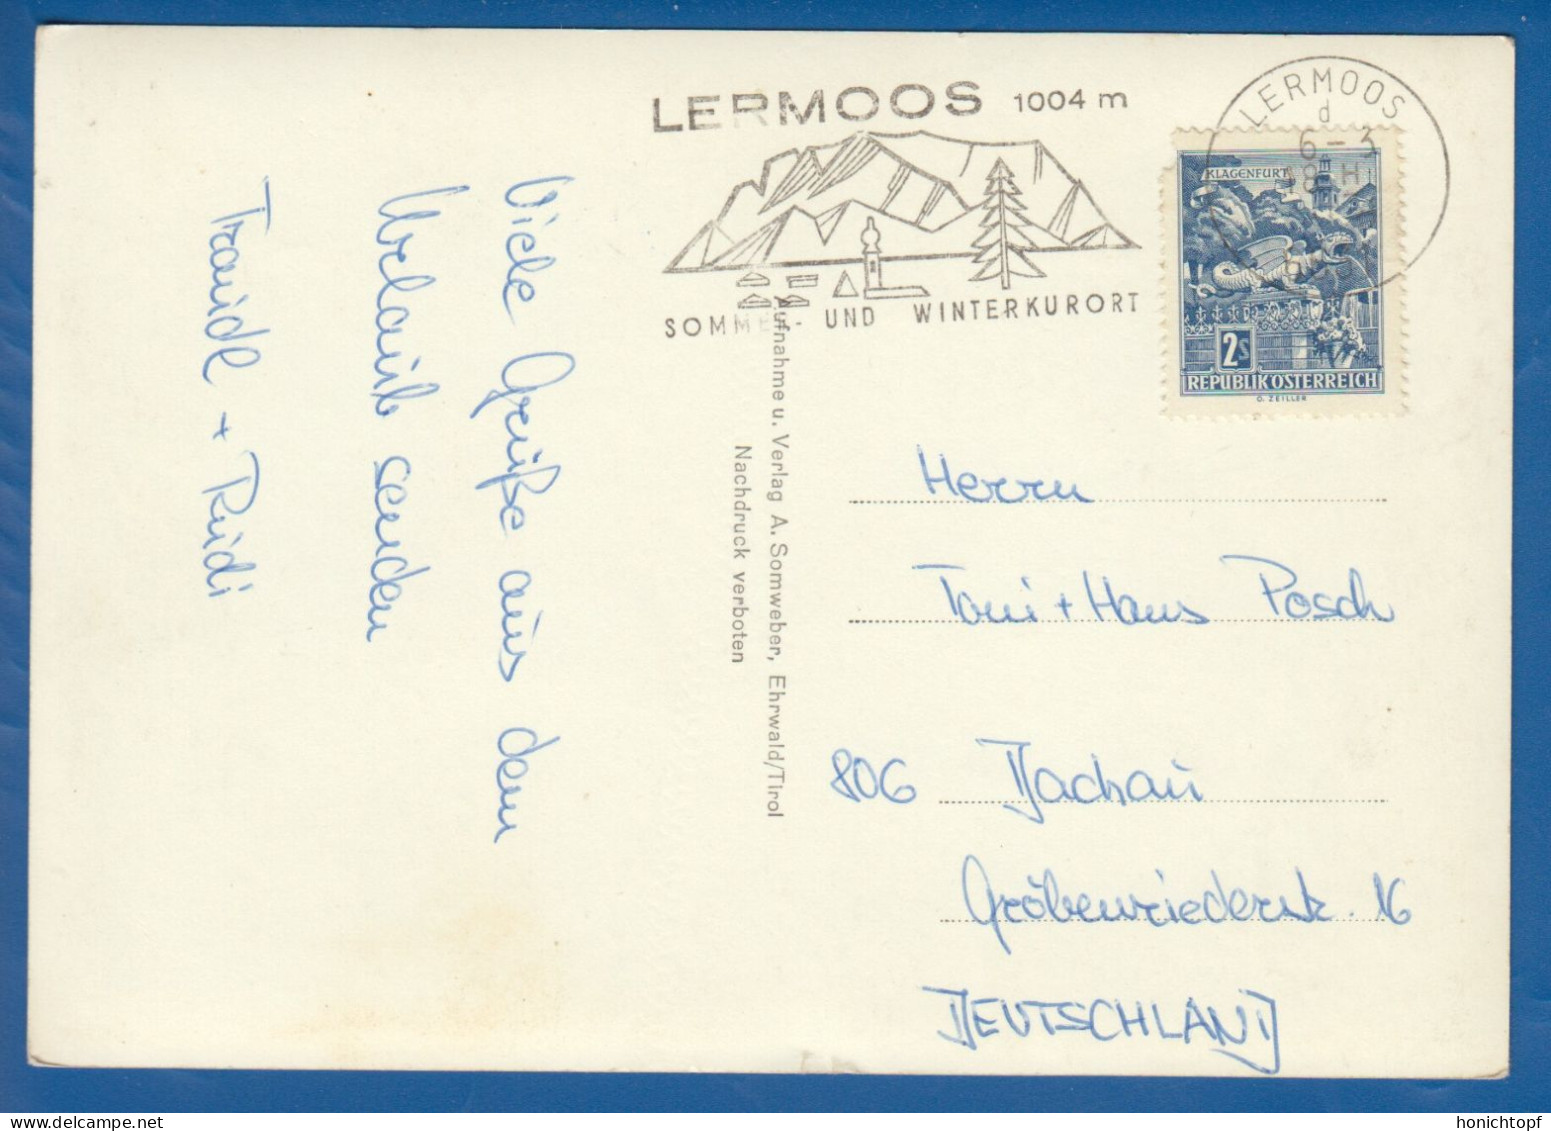 LERMOOS 1004 m
SOMMER- UND WINTERKURORT
LERMOOS
d
6-3
18 H
KLAGENFURT
2s
REPUBLIK ÖSTERREICH
O. ZEILLER
Viele Grüße aus dem
Urlaub senden
Traudl + Rudi
Aufnahme u. Verlag A. Somweber, Ehrwald/Tirol
Nachdruck verboten
Herrn
Toni + Hans Posch
806 Dachau
Gröbenriederstr. 16
DEUTSCHLAND
honichtopf